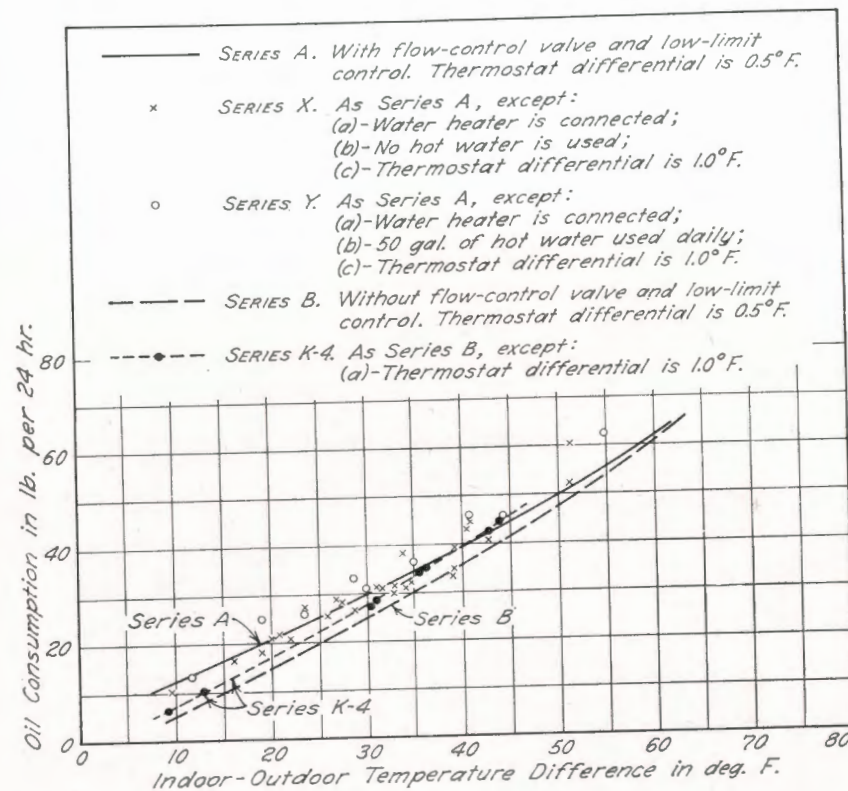 SERIES A. With flow-control valve and low-limit
control. Thermostat differential is 0.5°F.
SERIES X. As Series A, except:
(a)-Water heater is connected;
(b)-No hot water is used;
(c)-Thermostat differential is 1.0°F.
SERIES Y. As Series A, except:
(a)-Water heater is connected;
(b)-50 gal. of hot water used daily;
(c)-Thermostat differential is 1.0°F.
SERIES B. Without flow-control valve and low-limit
control. Thermostat differential is 0.5°F.
SERIES K-4. As Series B, except:
(a)-Thermostat differential is 1.0°F.
Oil Consumption in lb. per 24 hr.
80
60
40
20
0
Series A
Series B
Series K-4
0 10 20 30 40 50 60 70 80
Indoor-Outdoor Temperature Difference in deg. F.